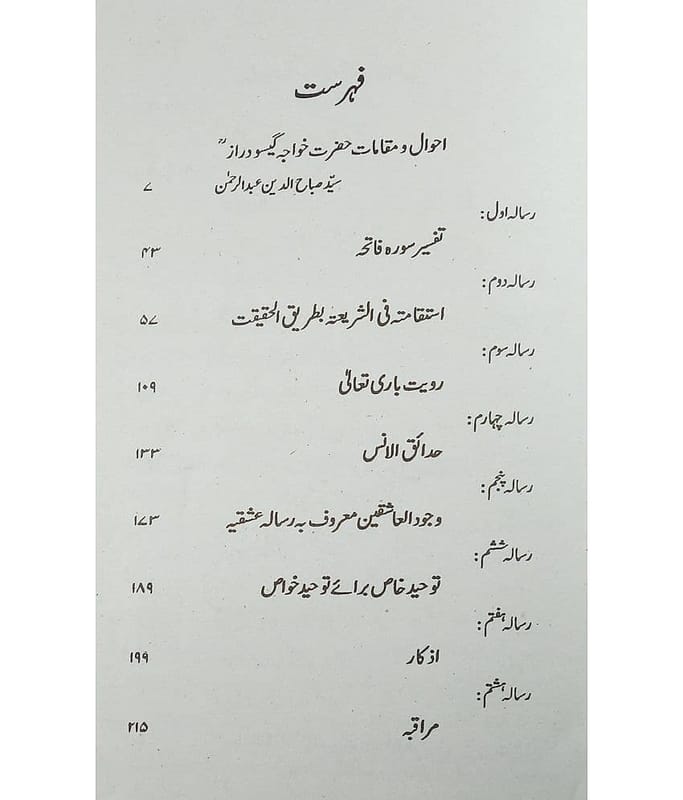 فہرست
احوال و مقامات حضرت خواجہ گیسو درازؒ
سیّد صباح الدین عبدالرحمٰن ۷
رسالہ اول:
تفسیر سورہ فاتحہ ۴۳
رسالہ دوم:
استقامتہ فی الشریعتہ بطریق الحقیقت ۵۷
رسالہ سوم:
رویت باری تعالیٰ ۱۰۹
رسالہ چہارم:
حدائق الانس ۱۳۳
رسالہ پنجم:
وجود العاشقین معروف بہ رسالہ عشقیہ ۱۷۳
رسالہ ششم:
توحید خاص برائے توحید خواص ۱۸۹
رسالہ ہفتم:
اذکار ۱۹۹
رسالہ ہشتم:
مراقبہ ۲۱۵